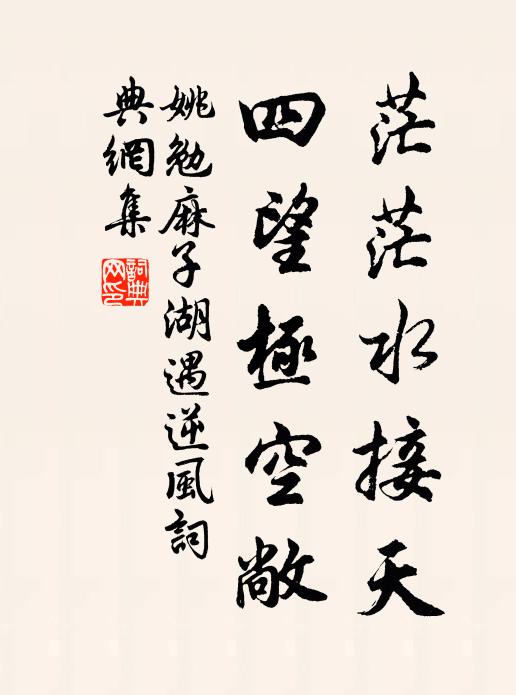 茫茫水接天
四望極空敞
姚勉麻子湖遇逆風詞
典網集
詞典
网印